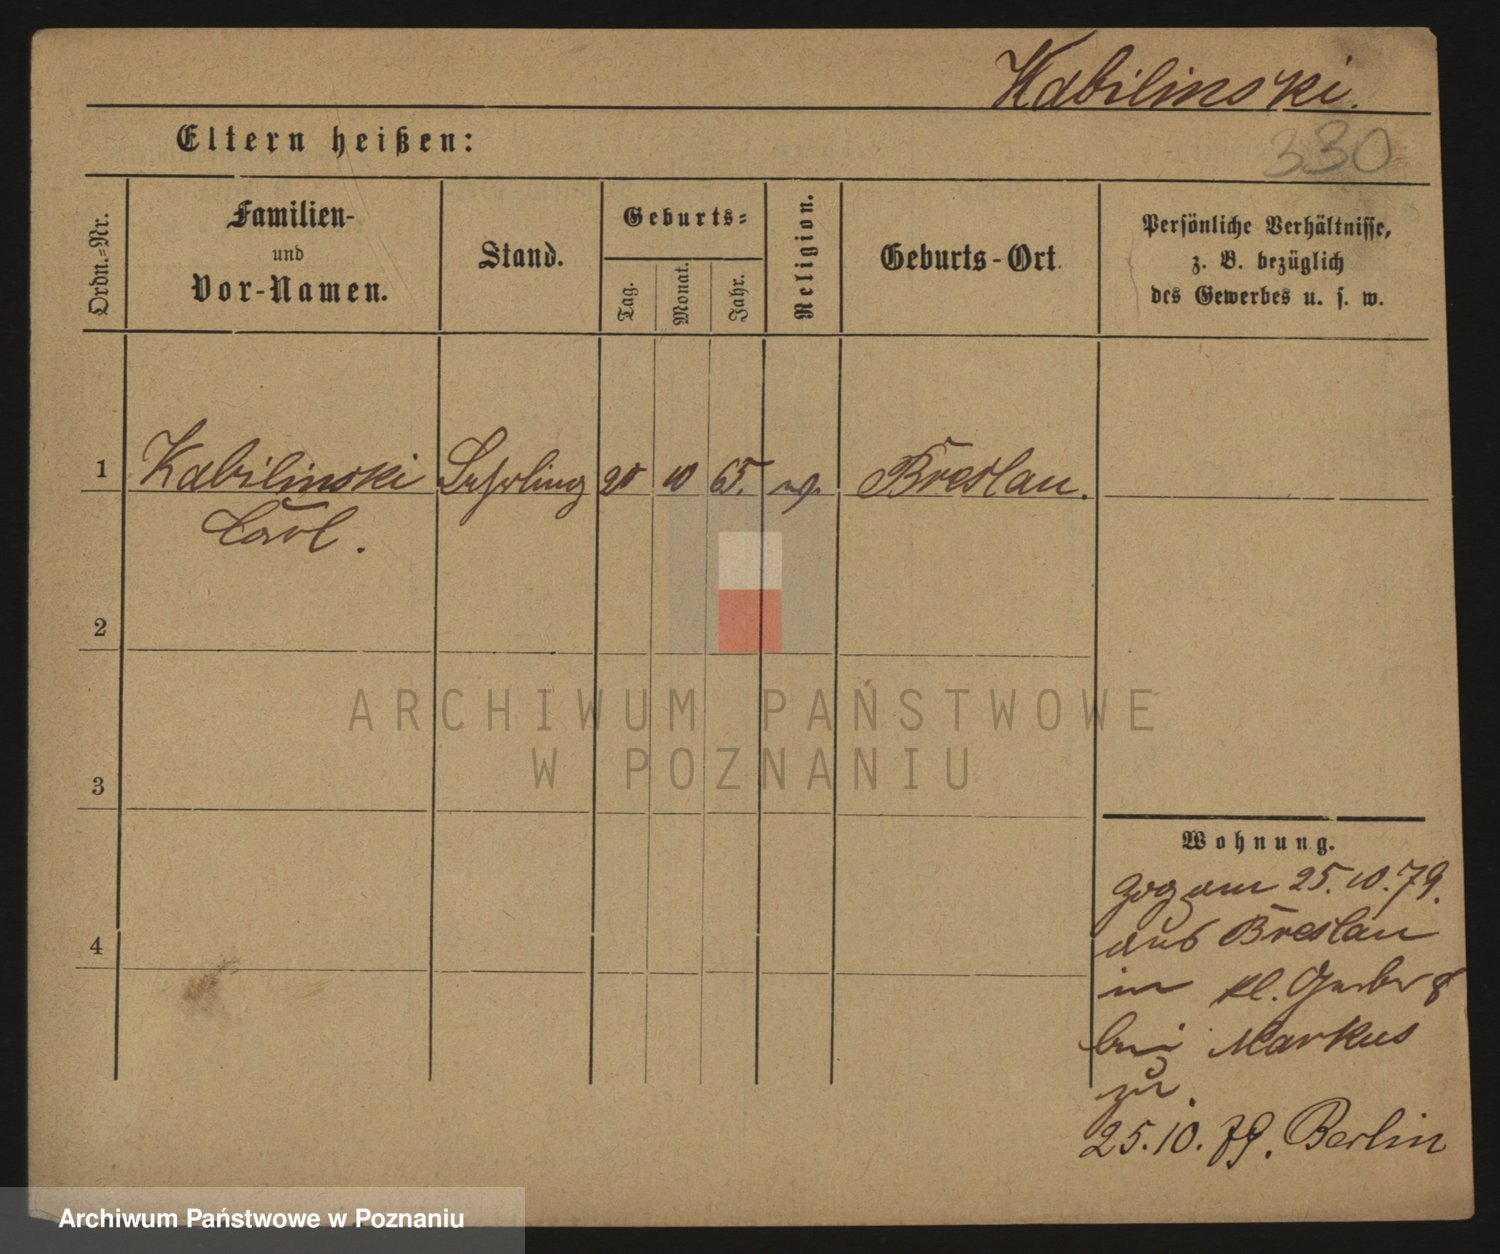 Kabilinski.
330
Eltern heißen:
Ordn.-Nr.
Familien-
und
Vor-Namen.
Stand.
Geburts-
Tag.
Monat.
Jahr.
Religion.
Geburts-Ort.
Persönliche Verhältnisse,
z. B. bezüglich
des Gewerbes u. s. w.
1 Kabilinski Lehrling 10 65. Breslau.
Carl.
2
3
4
Wohnung.
Zog am 25.10.79.
aus Breslau
in kl. Gerber 8
bei Markus
zu.
25.10.79. Berlin
ARCHIWUM PAŃSTWOWE
W POZNANIU
Archiwum Państwowe w Poznaniu